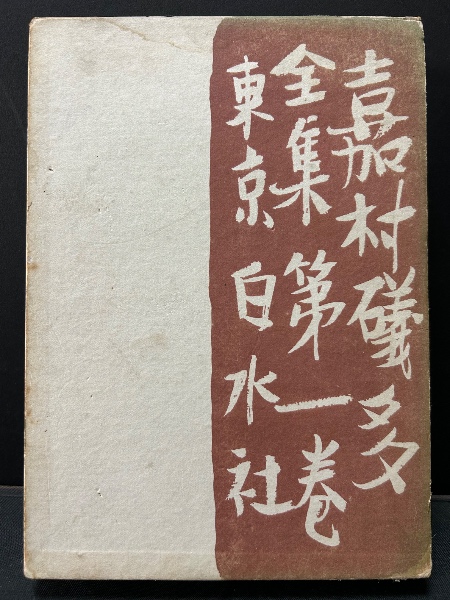 嘉村礒多
全集第一巻
東京白水社